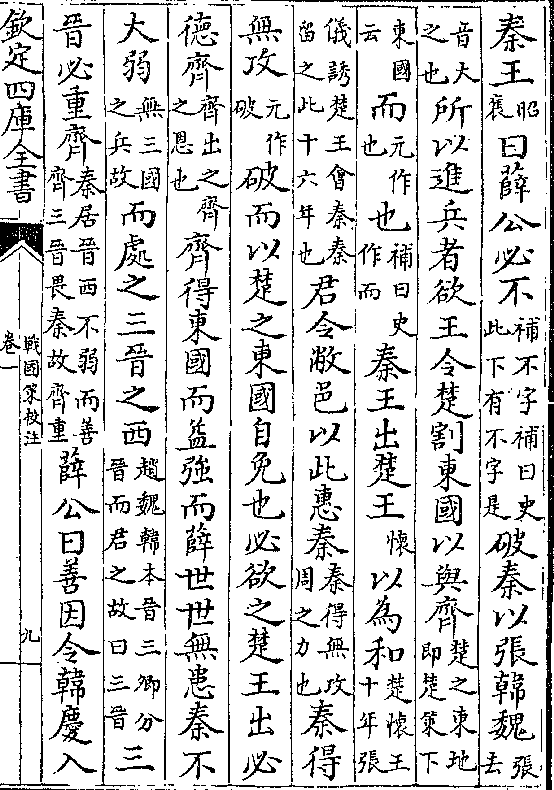 秦王昭襄曰薛公必不補不字補曰史此下有不字是破秦以張韓魏張去
音大之也所以進兵者欲王令楚割東國以與齊楚之東地即楚策下
東國云而元作也也補曰史作而秦王出楚王懷以為和楚懷王十年張
儀誘楚王會秦秦留之此十六年也君令敝邑以此惠秦秦得無攻周之力也秦得
無攻元作破破而以楚之東國自免也必欲之楚王出必
德齊齊出之齊之恩也齊得東國而益強而薛世世無患秦不
大弱無三國之兵故而處之三晉之西趙魏韓本晉三卿分晉而君之故曰三晉三
晉必重齊秦居晉西不弱而善齊三晉畏秦故齊重薛公曰善因令韓慶入
欽定四庫全書
戰國策校注
卷一
九